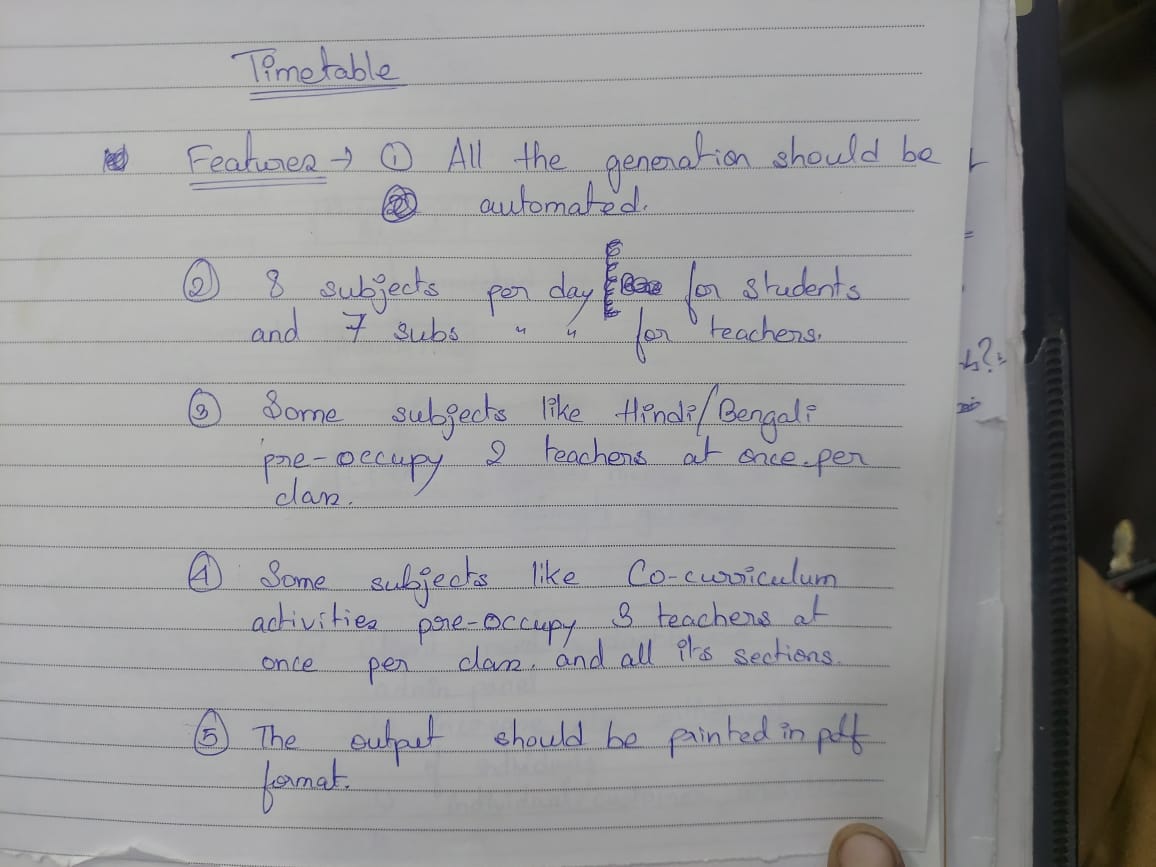 Timetable
Features → ① All the generation should be
automated.
② 8 subjects per day for students
and 7 subs " " for teachers.
③ Some subjects like Hindi/Bengali
pre-occupy 2 teachers at once per
class.
④ Some subjects like Co-curriculum
activities pre-occupy 3 teachers at
once per class. and all its sections.
⑤ The output should be printed in pdf
format.